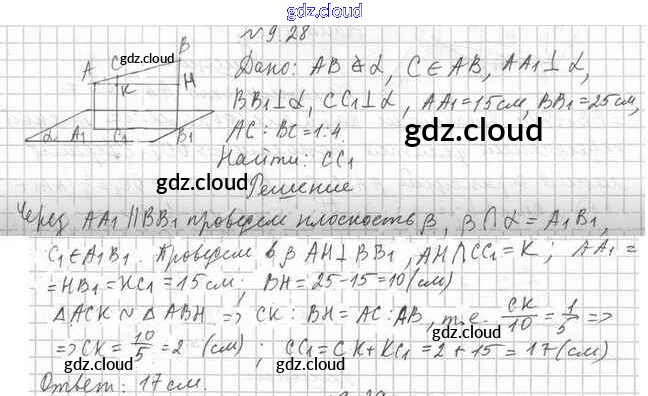 gdz.cloud
№9.28
Дано: AB ⊄ α, C ∈ AB, AA₁ ⊥ α,
BB₁ ⊥ α, CC₁ ⊥ α, AA₁ = 15 см, BB₁ = 25 см,
AC : BC = 1:4.
gdz.cloud
Найти: CC₁
gdz.cloud
Решение
gdz.cloud
A C B K H α A₁ C₁ B₁
Через AA₁ || BB₁ проведем плоскость β, β ∩ α = A₁B₁,
C₁ ∈ A₁B₁. Проведем в β AH ⊥ BB₁, AH ∩ CC₁ = K; AA₁ =
= HB₁ = KC₁ = 15 см; BH = 25 - 15 = 10 (см)
△ACK ~ △ABH => CK : BH = AC : AB, т.е. CK/10 = 1/5 =>
=> CK = 10/5 = 2 (см); CC₁ = CK + KC₁ = 2 + 15 = 17 (см)
gdz.cloud
gdz.cloud
Ответ: 17 см.